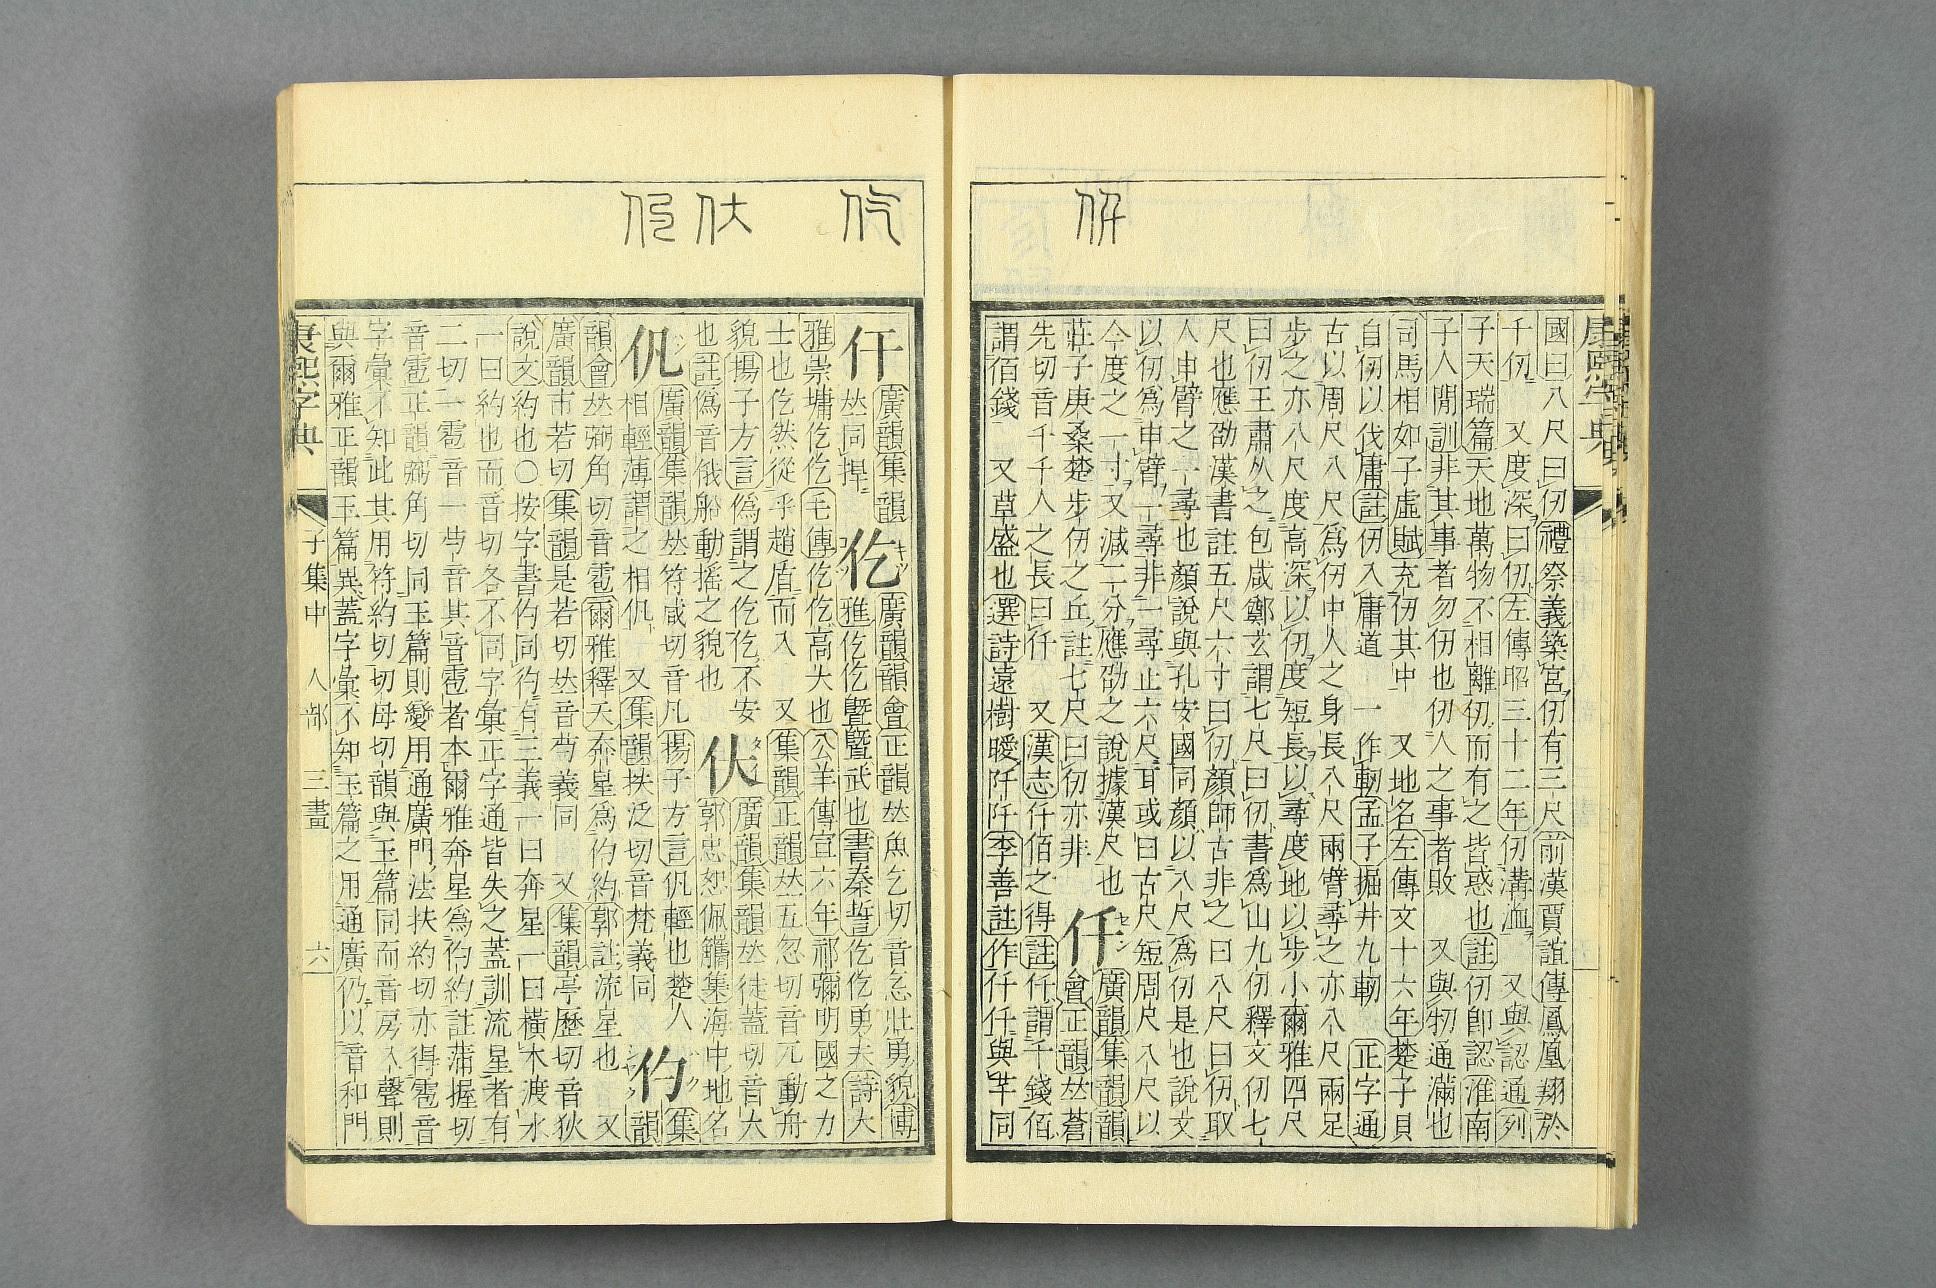 康熙字典
國曰八尺曰仞禮祭義築宮仞有三尺前漢賈誼傳鳳凰翔於
千仞 又度深曰仞左傳昭三十二年仞溝洫 又與認通列
子天瑞篇天地萬物不相離仞而有之皆惑也註仞卽認淮南
子人閒訓非其事者勿仞也仞人之事者敗 又與牣通滿也
司馬相如子虛賦充仞其中 又地名左傳文十六年楚子貝
自仞以伐庸註仞入庸道 一作軔孟子掘井九軔 正字通
古以周尺八尺爲仞中人之身長八尺兩臂尋之亦八尺兩足
步之亦八尺度高深以仞度短長以尋度地以步小爾雅四尺
曰仞王肅从之包咸鄭玄謂七尺曰仞書爲山九仞釋文仞七
尺也應劭漢書註五尺六寸曰仞顏師古非之曰八尺曰仞取
人申臂之一尋也顏說與孔安國同顏以八尺爲仞是也說文
以仞爲申臂一尋非一尋止六尺耳或曰古尺短周尺八尺以
今度之一寸又減二分應劭之說據漢尺也 仟 廣韻集韻韻
莊子庚桑楚步仞之丘註七尺曰仞亦非 會正韻𠀤蒼
先切音千千人之長曰仟 又漢志仟佰之得註仟謂千錢佰
謂佰錢 又草盛也選詩遠樹曖仟仟李善註作仟仟與芊同
仠 廣韻集韻 𠀤同捍 仡 廣韻韻會正韻𠀤魚乞切音忔壯勇貌博
雅仡仡曁曁武也書秦誓仡仡勇夫詩大
雅崇墉仡仡毛傳仡仡高大也公羊傳宣六年祁彌明國之力
士也仡然從乎趙盾而入 又集韻正韻𠀤五忽切音兀動舟
貌揚子方言僞謂之仡仡不安 㐲 廣韻集韻𠀤徒蓋切音大
也註僞音俄船動搖之貌也 郭忠恕佩觿集海中地名
仉 廣韻集韻𠀤符咸切音凡揚子方言仉輕也楚人
相輕薄謂之相仉 又集韻扶泛切音梵義同 仢 集韻
韻會𠀤弼角切音雹爾雅釋天奔星爲仢約郭註流星也 又
廣韻市若切集韻是若切𠀤音芍義同 又集韻亭歷切音狄
說文約也〇按字書仢同彴彴有三義一曰奔星一曰橫木渡水
一曰約也而音切各不同字彙正字通皆失之蓋訓流星者有
二切一雹音一芍音其音雹者本爾雅奔星爲彴約註蒲握切
音雹正韻弼角切同玉篇則變用通廣門法扶約切亦得雹音
字彙不知此其用符約切切母切韻與玉篇同而音房入聲則
與爾雅正韻玉篇異蓋字彙不知玉篇之用通廣仍以音和門
康熙字典 子集中 人部 三畫 六